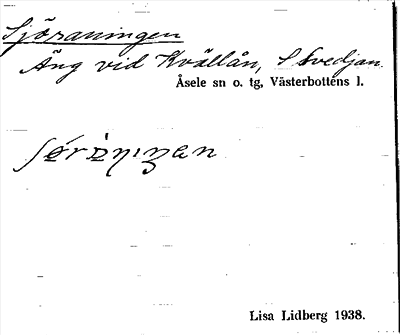 Sjöraningen
Äng vid Kvällån, S Svedjan.
Åsele sn o. tg, Västerbottens l.
Lisa Lidberg 1938.